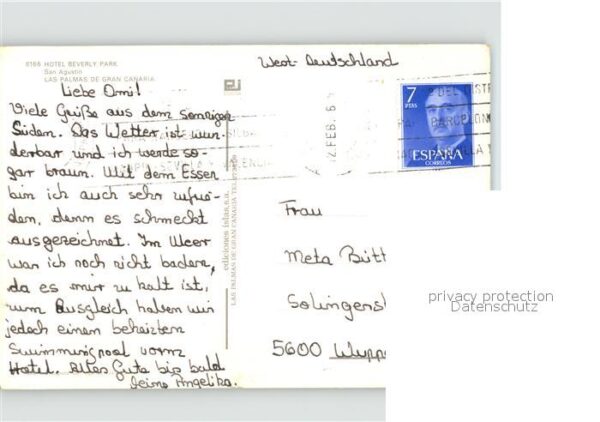 8166 HOTEL BEVERLY PARK
San Agustin
LAS PALMAS DE GRAN CANARIA
West-Deutschland
Liebe Omi!
Viele Grüße aus dem sonnigen
Süden. Das Wetter ist wun-
derbar und ich werde so-
gar braun. Mit dem Essen
bin ich auch sehr zufrie-
den, denn es schmeckt
ausgezeichnet. Im Meer
war ich noch nicht baden,
da es mir zu kalt ist,
zum Ausgleich haben wir
jedoch einen beheizten
Swimmingpool vorm
Hotel. Alles Gute bis bald
Deine Angelika.
ediciones islas, s.a.
LAS PALMAS DE GRAN CANARIA
7
PTAS
ESPAÑA
CORREOS
12 FEB.
SEVILLA Y VALENCIA
BARCELONA
Frau
Meta Bütt
Solingenst
5600 Wupp
privacy protection
Datenschutz